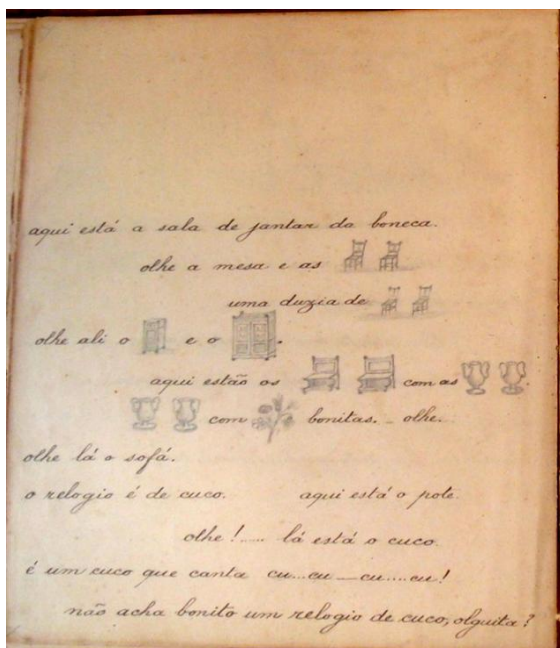 aqui está a sala de jantar da boneca.
olhe a mesa e as
uma duzia de
olhe ali o e o .
aqui estão os com as
com bonitas. _ olhe.
olhe lá o sofá.
o relogio é de cuco. aqui está o pote.
olhe !..... lá está o cuco.
é um cuco que canta cu...cu — cu....cu!
não acha bonito um relogio de cuco, olguita?